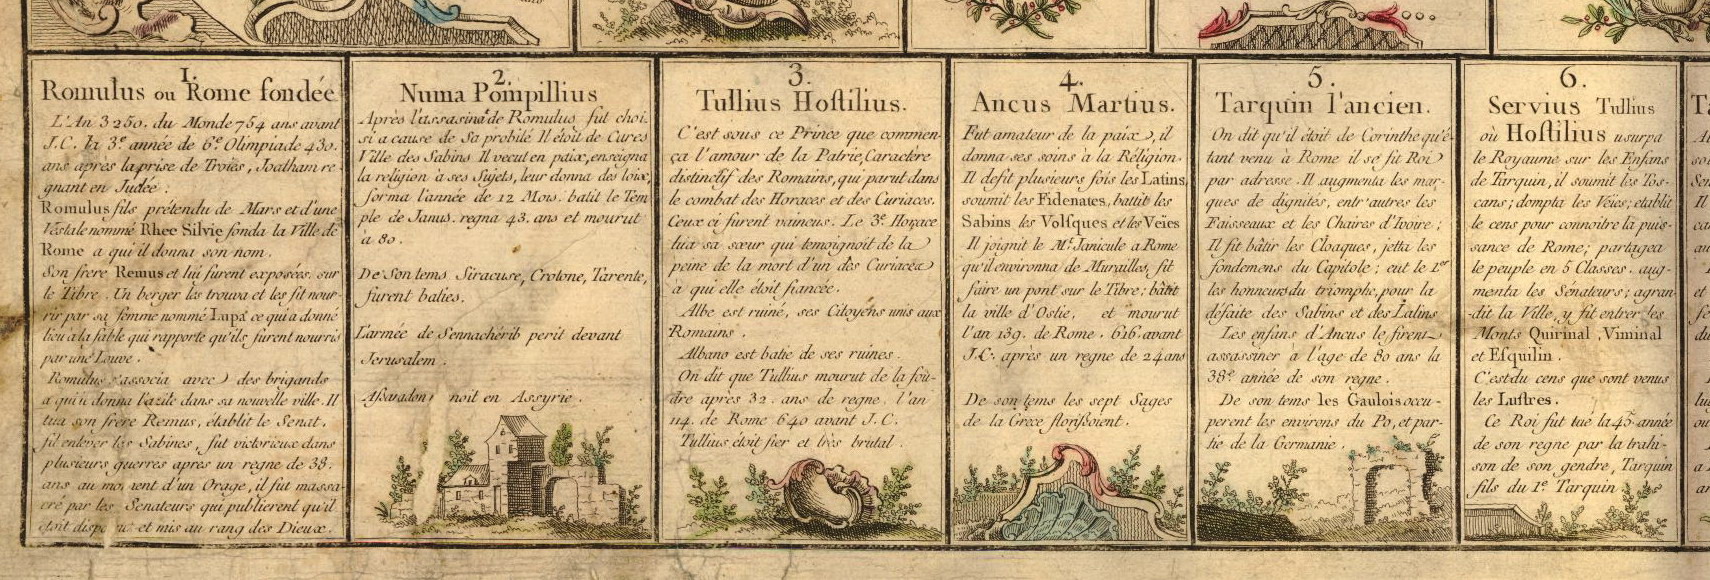 1.
Romulus ou Rome fondée
L'An 3250. du Monde 754 ans avant
J.C. la 3e. année de 6e Olimpiade 430.
ans après la prise de Troïes, Joatham re-
gnant en Judée.
Romulus fils prétendu de Mars et d'une
Vestale nommé Rhee Silvie fonda la Ville de
Rome a qui il donna son nom.
Son frere Remus et lui furent exposées sur
le Tibre. Un berger les trouva et les fit nour-
rir par sa femme nommé Lupa ce qui a donné
lieu a la fable qui rapporte qu'ils furent nourris
par une Louve.
Romulus s'associa avec des brigands
a qui il donna l'azile dans sa nouvelle ville. Il
tua son frere Remus, établit le Senat,
fit enlever les Sabines, fut victorieux dans
plusieurs guerres apres un regne de 38.
ans au moment d'un Orage, il fut massa-
cré par les Senateurs qui publierent qu'il
était disparu et mis au rang des Dieux.
2.
Numa Pompillius
Après l'assasinâ de Romulus fut choi-
si a cause de Sa probité Il étoit de Cures
Ville des Sabins Il vecut en paix, enseigna
la religion a ses Sujets, leur donna des loix,
forma l'année de 12 Mois. batit le Tem
ple de Janus. regna 43. ans et mourut
à 80.
De Son tems Siracuse, Crotone, Tarente,
furent baties.
L'armée de Sennachérib perit devant
Jerusalem.
Assaradon noit en Assyrie.
3.
Tullius Hostilius.
C'est sous ce Prince que commen-
ça l'amour de la Patrie, Caractère
distinctif des Romains, qui parut dans
le combat des Horaces et des Curiaces.
Ceux ci furent vaincus. Le 3e Horace
tua sa sœur qui temoignoit de la
peine de la mort d'un des Curiaces
à qui elle étoit fiancée.
Albe est ruiné, ses Citoyens unis aux
Romains.
Albano est batie de ses ruines.
On dit que Tullius mourut de la fou-
dre apres 32. ans de regne. l'an
114. de Rome 640 avant J.C.
Tullius étoit fier et très brutal.
4.
Ancus Martius.
Fut amateur de la paix, il
donna ses soins à la Réligion.
Il defit plusieurs fois les Latins,
soumit les Fidenates, battit les
Sabins les Volsques et les Veïes
Il joignit le Mt. Janicule a Rome
qu'il environna de Murailles, fit
faire un pont sur le Tibre; bâtit
la ville d'Ostie, et mourut
l'an 139. de Rome. 616. avant
J.C. après un regne de 24 ans
De son tems les sept Sages
de la Grèce florissoient.
5.
Tarquin l'ancien.
On dit qu'il étoit de Corinthe qu'é-
tant venu à Rome il se fit Roi
par adresse. Il augmenta les mar-
ques de dignités, entr'autres les
Faisseaux et les Chaires d'Ivoire;
Il fit bâtir les Cloaques, jetta les
fondemens du Capitole; eut le 1er
les honneurs du triomphe, pour la
défaite des Sabins et des Latins
Les enfans d'Ancus le firent
assassiner à l'age de 80 ans la
38e. année de son regne.
De son tems les Gaulois occu-
perent les environs du Po, et par-
tie de la Germanie.
6.
Servius Tullius
où Hostilius usurpa
le Royaume sur les Enfans
de Tarquin, il soumit les Tos-
cans; dompta les Véïes; etablit
le cens pour connoitre la puis-
sance de Rome; partagea
le peuple en 5 Classes. aug-
menta les Sénateurs; agran-
dit la Ville, y fit entrer les
Monts Quirinal, Viminal
et Esquilin.
C'est du cens que sont venus
les Lustres.
Ce Roi fut tué la 45. année
de son regne par la trahi-
son de son gendre, Tarquin
fils du 1e. Tarquin